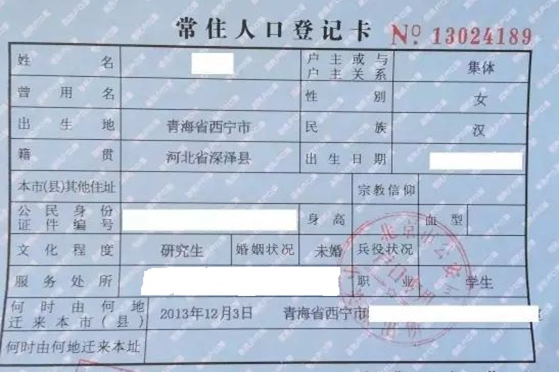 常住人口登记卡 No. 13024189
姓名 户主或与户主关系 集体
曾用名 性别 女
出生地 青海省西宁市 民族 汉
籍贯 河北省深泽县 出生日期
本市(县)其他住址 宗教信仰
公民身份证件编号 身高 血型
文化程度 研究生 婚姻状况 未婚 兵役状况
服务处所 职业 学生
何时由何地迁来本市(县) 2013年12月3日 青海省西宁市
何时由何地迁来本址